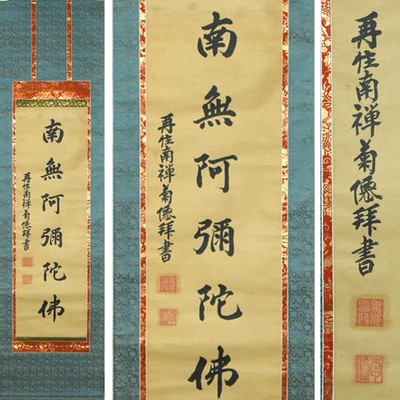 南無阿彌陀佛
再住南禅菊僊拜書
南無阿彌陀佛
再住南禅菊僊拜書
再住南禅菊僊拜書